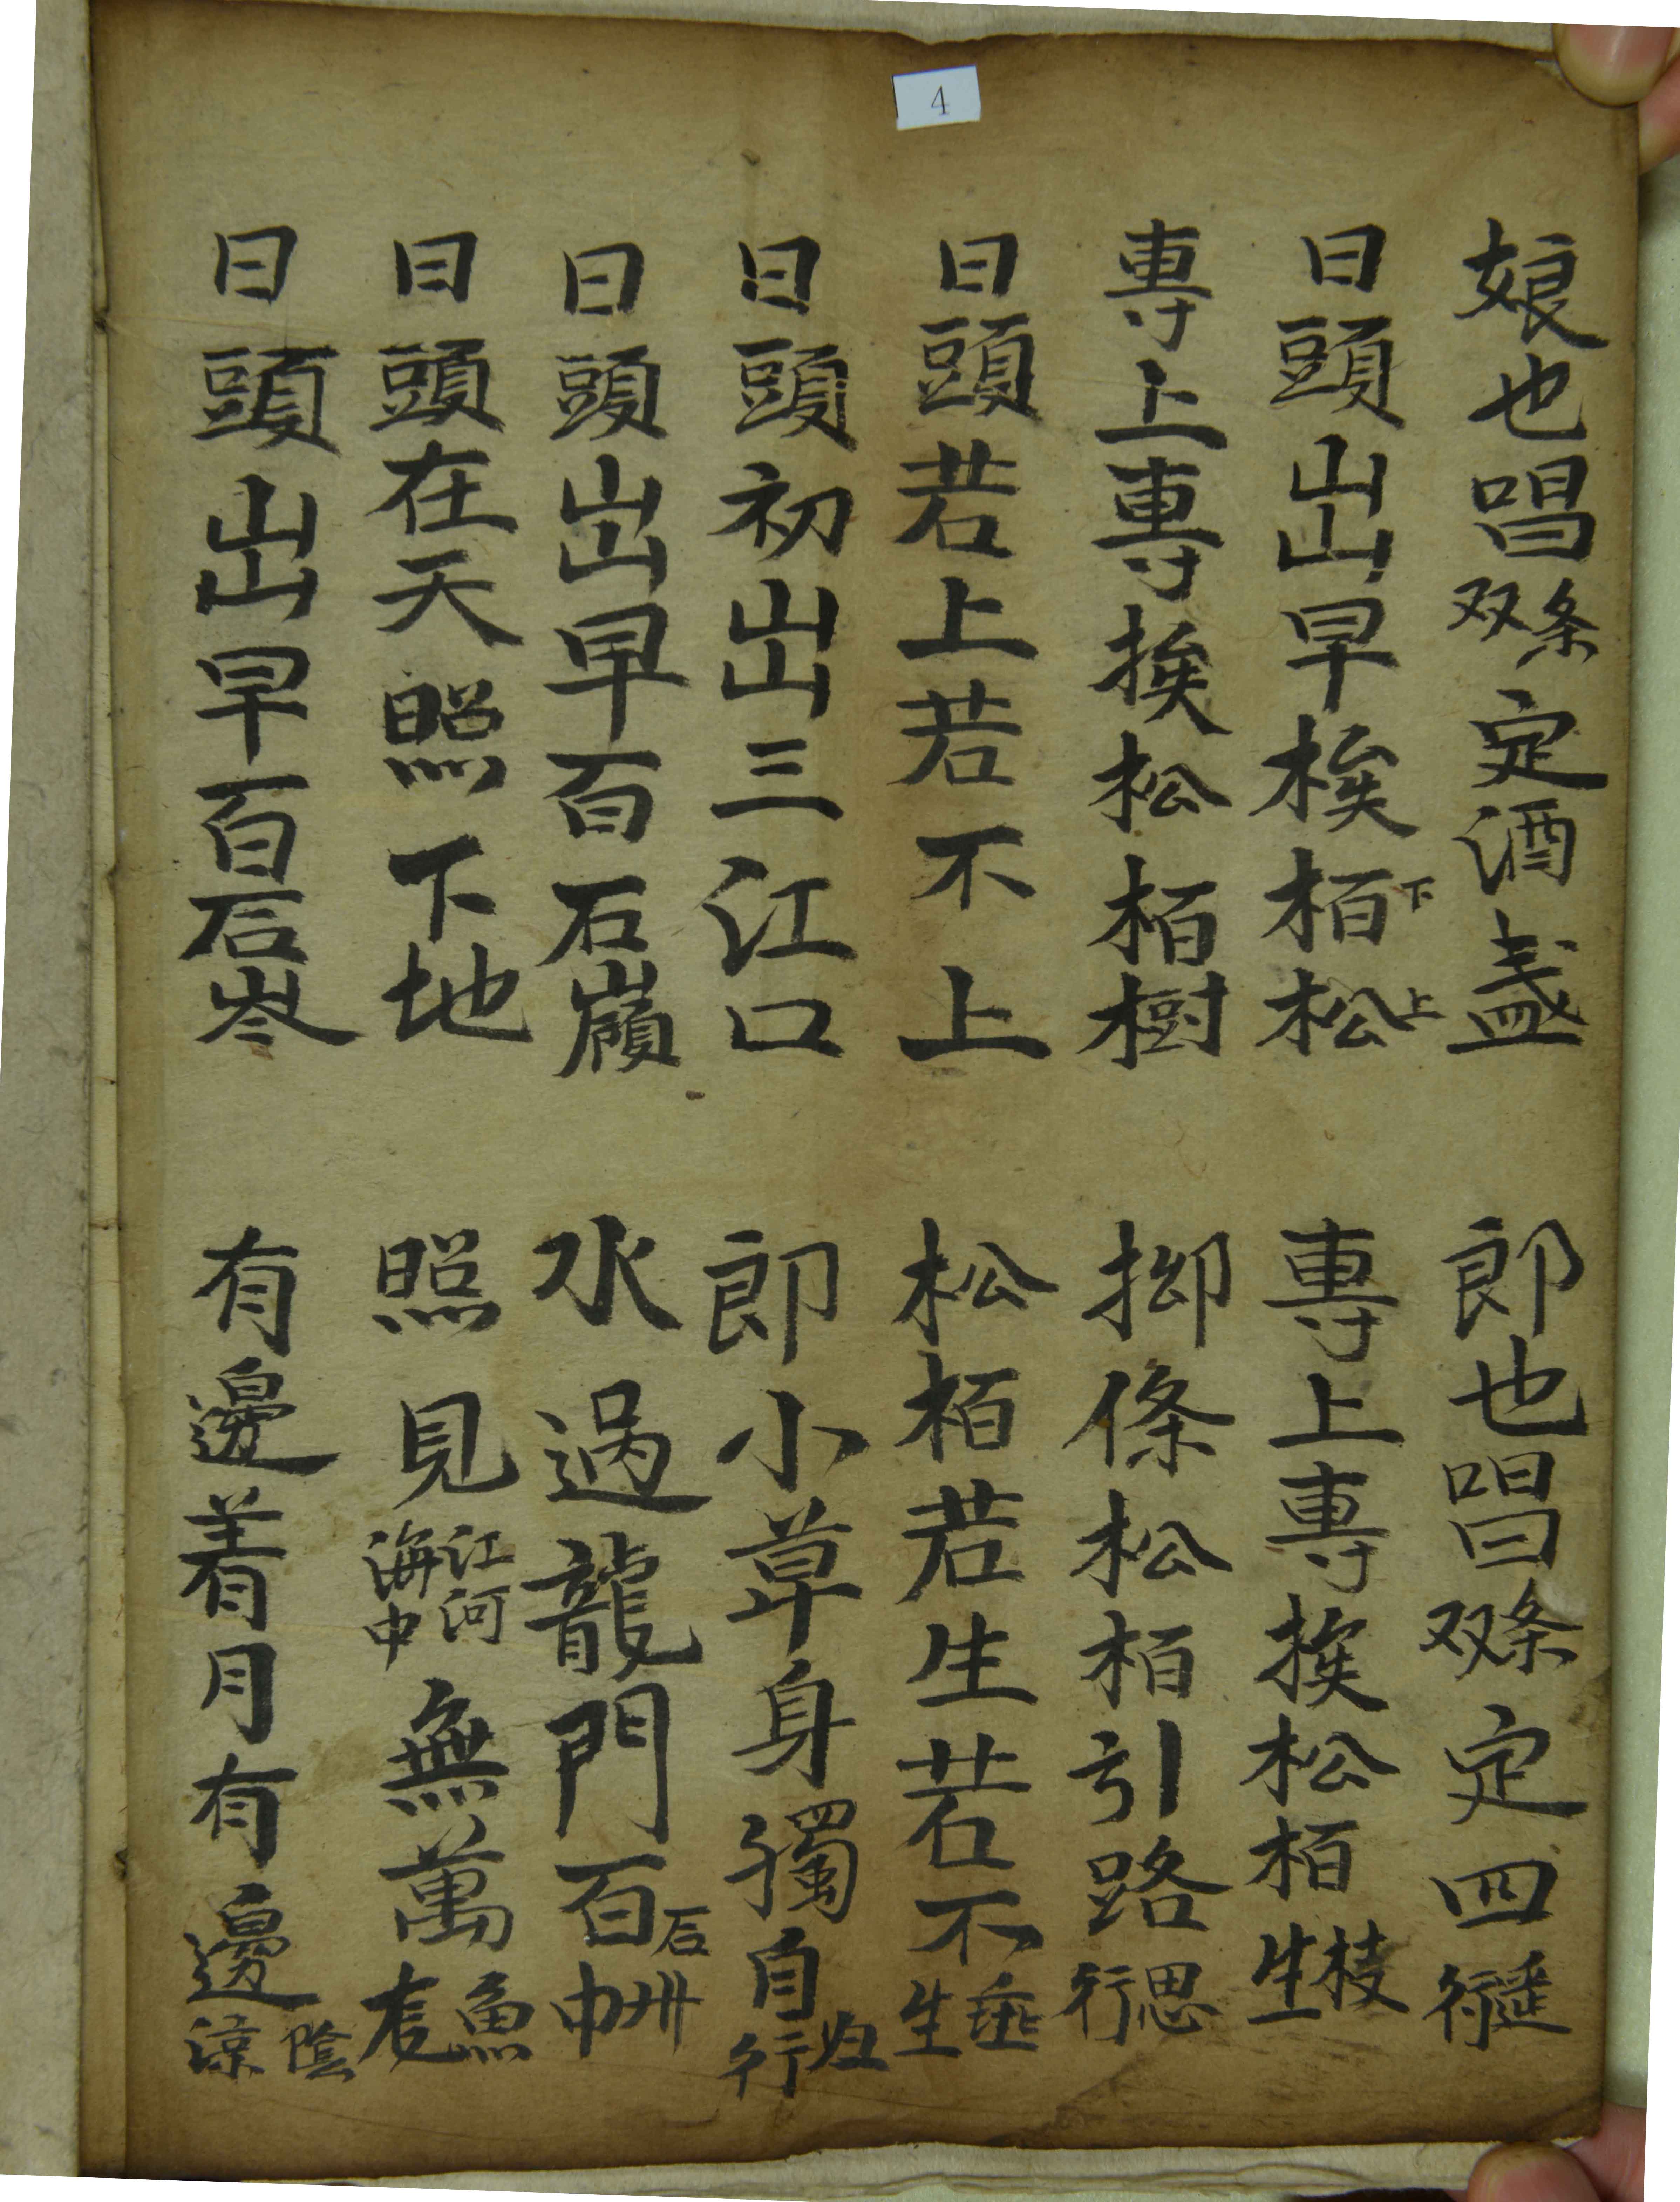 4
娘也唱双条定酒盞
郎也唱双条定四行遥
日頭出早挨栢下松上
專上專挨松栢生枝
專上專挨松栢樹
抑條松栢引路行思
日頭若上若不上
松栢若生若不生垂
日頭初出三江口
郎小草身獨自行归
日頭出早百石嶺
水過龍門百石卅
日頭在天照下地
照見江河海中無萬魚
日頭出早百石岺
有邊着月有邊陰涼